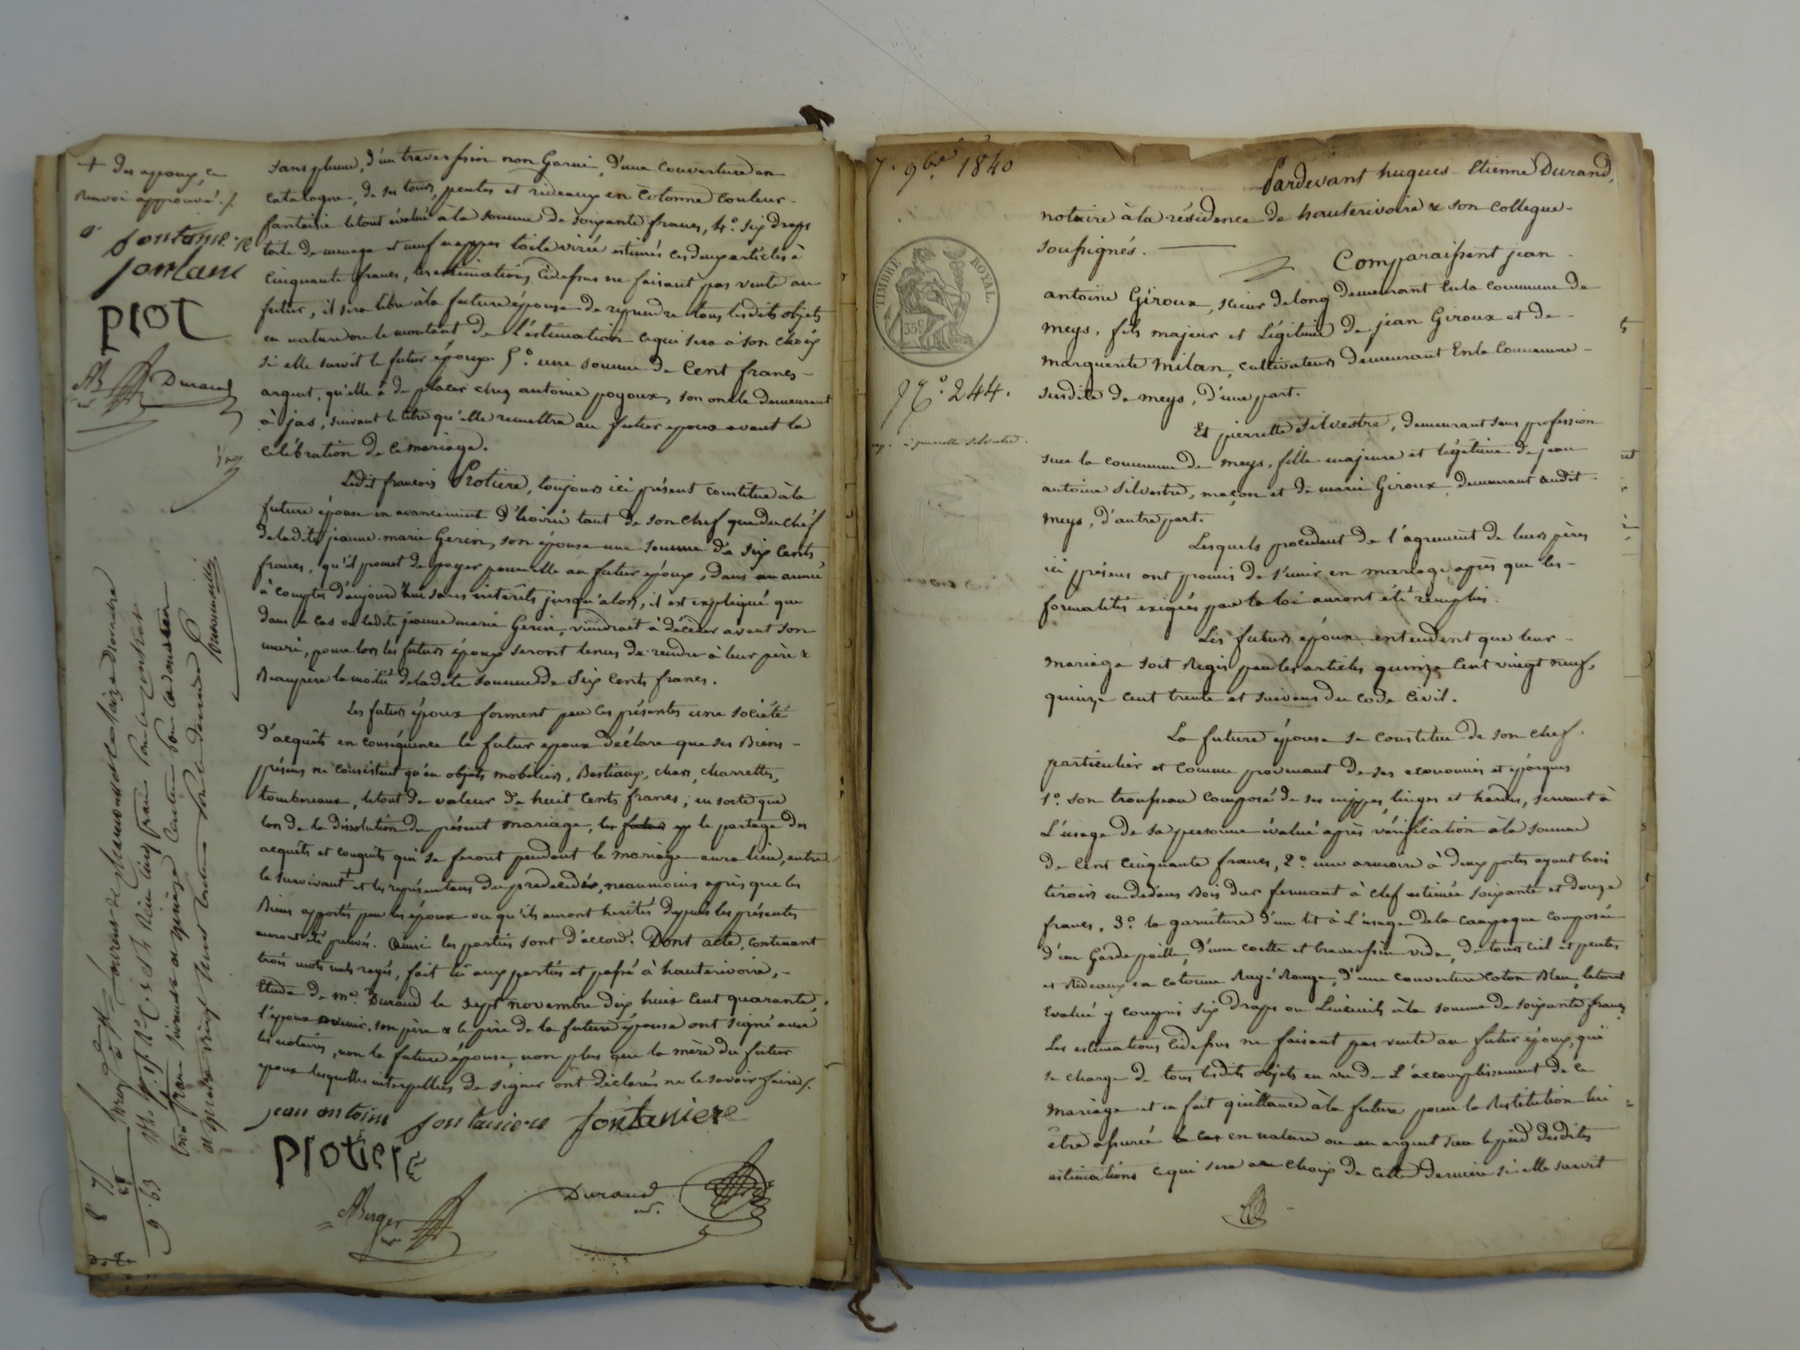 + des epoux, ce
renvoi approuvé ./.
fontaniere
fontani
prot
AB Durand
sans plume, d'un traversin non Garni, d'une couverture en
catalogne, de ses tours, pentes et rideaux en cotonne couleur
fantaisie le tout évalué à la somme de soixante francs, 4.° six draps
toile de menage et neuf nappes toile virée estimés ces deux articles à
cinquante francs, les estimations cidessus ne faisant pas vente au
futur, il sera libre à la future épouse de reprendre tous lesdits objets
en nature ou le montant de l'estimation ce qui sera à son choix
si elle survit le futur époux. 5.° une somme de Cent francs
argent, qu'elle a de placés chez antoine poyoux, son oncle demeurant
à jas, suivant le titre qu'elle remettra au futur epoux avant la
célébration de ce mariage.
Ledit francois Protiere, toujours ici présent constitue à la
future épouse en avancement d'hoirie tant de son chef que du chef
de ladite jeanne marie Gerin, son épouse une somme de six cents
francs, qu'il promet de payer pour elle au futur époux, dans un année
à compter d'aujourd'hui sans intérêts jusqu'alors, il est expliqué que
dans le cas où ladite jeanne marie Gerin, viendrait à décéder avant son
mari, pour lors les futurs époux seront tenus de rendre à leur père &
Beaupere la moitié de ladite somme de Six Cents francs.
Les futurs époux forment par ces présentes une société
d'acquêts en conséquence le futur epoux déclare que ses Biens
présens ne consistent qu'en objets mobiliers, Bestiaux, chars, charrettes,
tombereaux, le tout de valeur de huit Cents francs, en sorte que
lors de la dissolution du présent mariage, le partage des
acquêts et conquêts qui se feront pendant le mariage aura lieu, entre
le survivant + et les représentans du predecédé, neanmoins après que les
Biens apportés par les époux ou qu'ils auront herités depuis les présentes
auront été prelevés. Ainsi les parties sont d'accord. Dont acte, contenant
trois mots nuls rayés, fait lû aux parties et passé à hauterivoire,
Etude de m.e Durand le sept novembre dix huit cent quarante,
l'époux son père & le père de la future épouse ont signé avec
les notaires, non la future épouse, non plus que la mère du futur
epoux lesquelles interpellées de signer ont déclaré ne le savoir faire ./.
jean antoine fontaniere fontaniere
protiere
ABerger Durand
7. 9bre 1840
TIMBRE ROYAL
35c
N.° 244.
Pardevant hugues Etienne Durand,
notaire à la résidence de hauterivoire & son collegue
soussignés.
Comparaissent jean
antoine Giroux, scieur de long demeurant en la commune de
meys, fils majeur et légitime de jean Giroux et de
marguerite milan, cultivateurs demeurant en la Commune
susdite de meys, d'une part.
Et pierrette Silvestre, demeurant sans profession
sur la commune de meys, fille majeure et légitime de jean
antoine Silvestre, maçon et de marie Giroux, demeurant audit
meys, d'autre part.
Lesquels procedant de l'agrement de leurs pères
ici présens ont promis de s'unir en mariage après que les
formalités exigées par la loi auront été remplies.
Les futurs époux entendent que leur
mariage soit Régis par les articles quinze Cent vingt neuf,
quinze cent trente et suivans du code Civil.
La future épouse se constitue de son chef
particulier et comme provenant de ses economies et épargnes
1.° son trousseau composé de ses nippes, linges et hardes, servant à
l'usage de sa personne évalué après vérification à la somme
de Cent cinquante francs, 2.° une armoire à deux portes ayant trois
tiroirs en dedans Bois dur fermant à clef estimée soixante et douze
francs, 3.° la garniture d'un lit à l'usage de la campagne composée
d'un Garde paille, d'une coette et traversin vide, de tours ciel et pentes
et Rideaux en cotonne Rayé Rouge, d'une couverture Coton Bleu, le tout
Evalué y compris six draps ou Linceuils à la somme de soixante francs,
Les estimations cidessus ne faisant pas vente au futur époux, qui
se charge de tous lesdits objets en vue de l'accomplissement de ce
mariage et en fait quittance à la future pour la Restitution lui
être assurée le cas en nature ou en argent sur le pied desdites
estimations ce qui sera au choix de cette dernière si elle survit